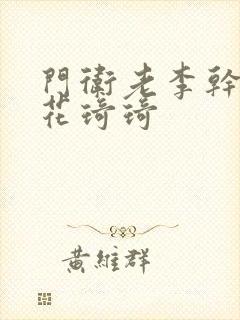 門衛老李幹
花琦琦
黃維群